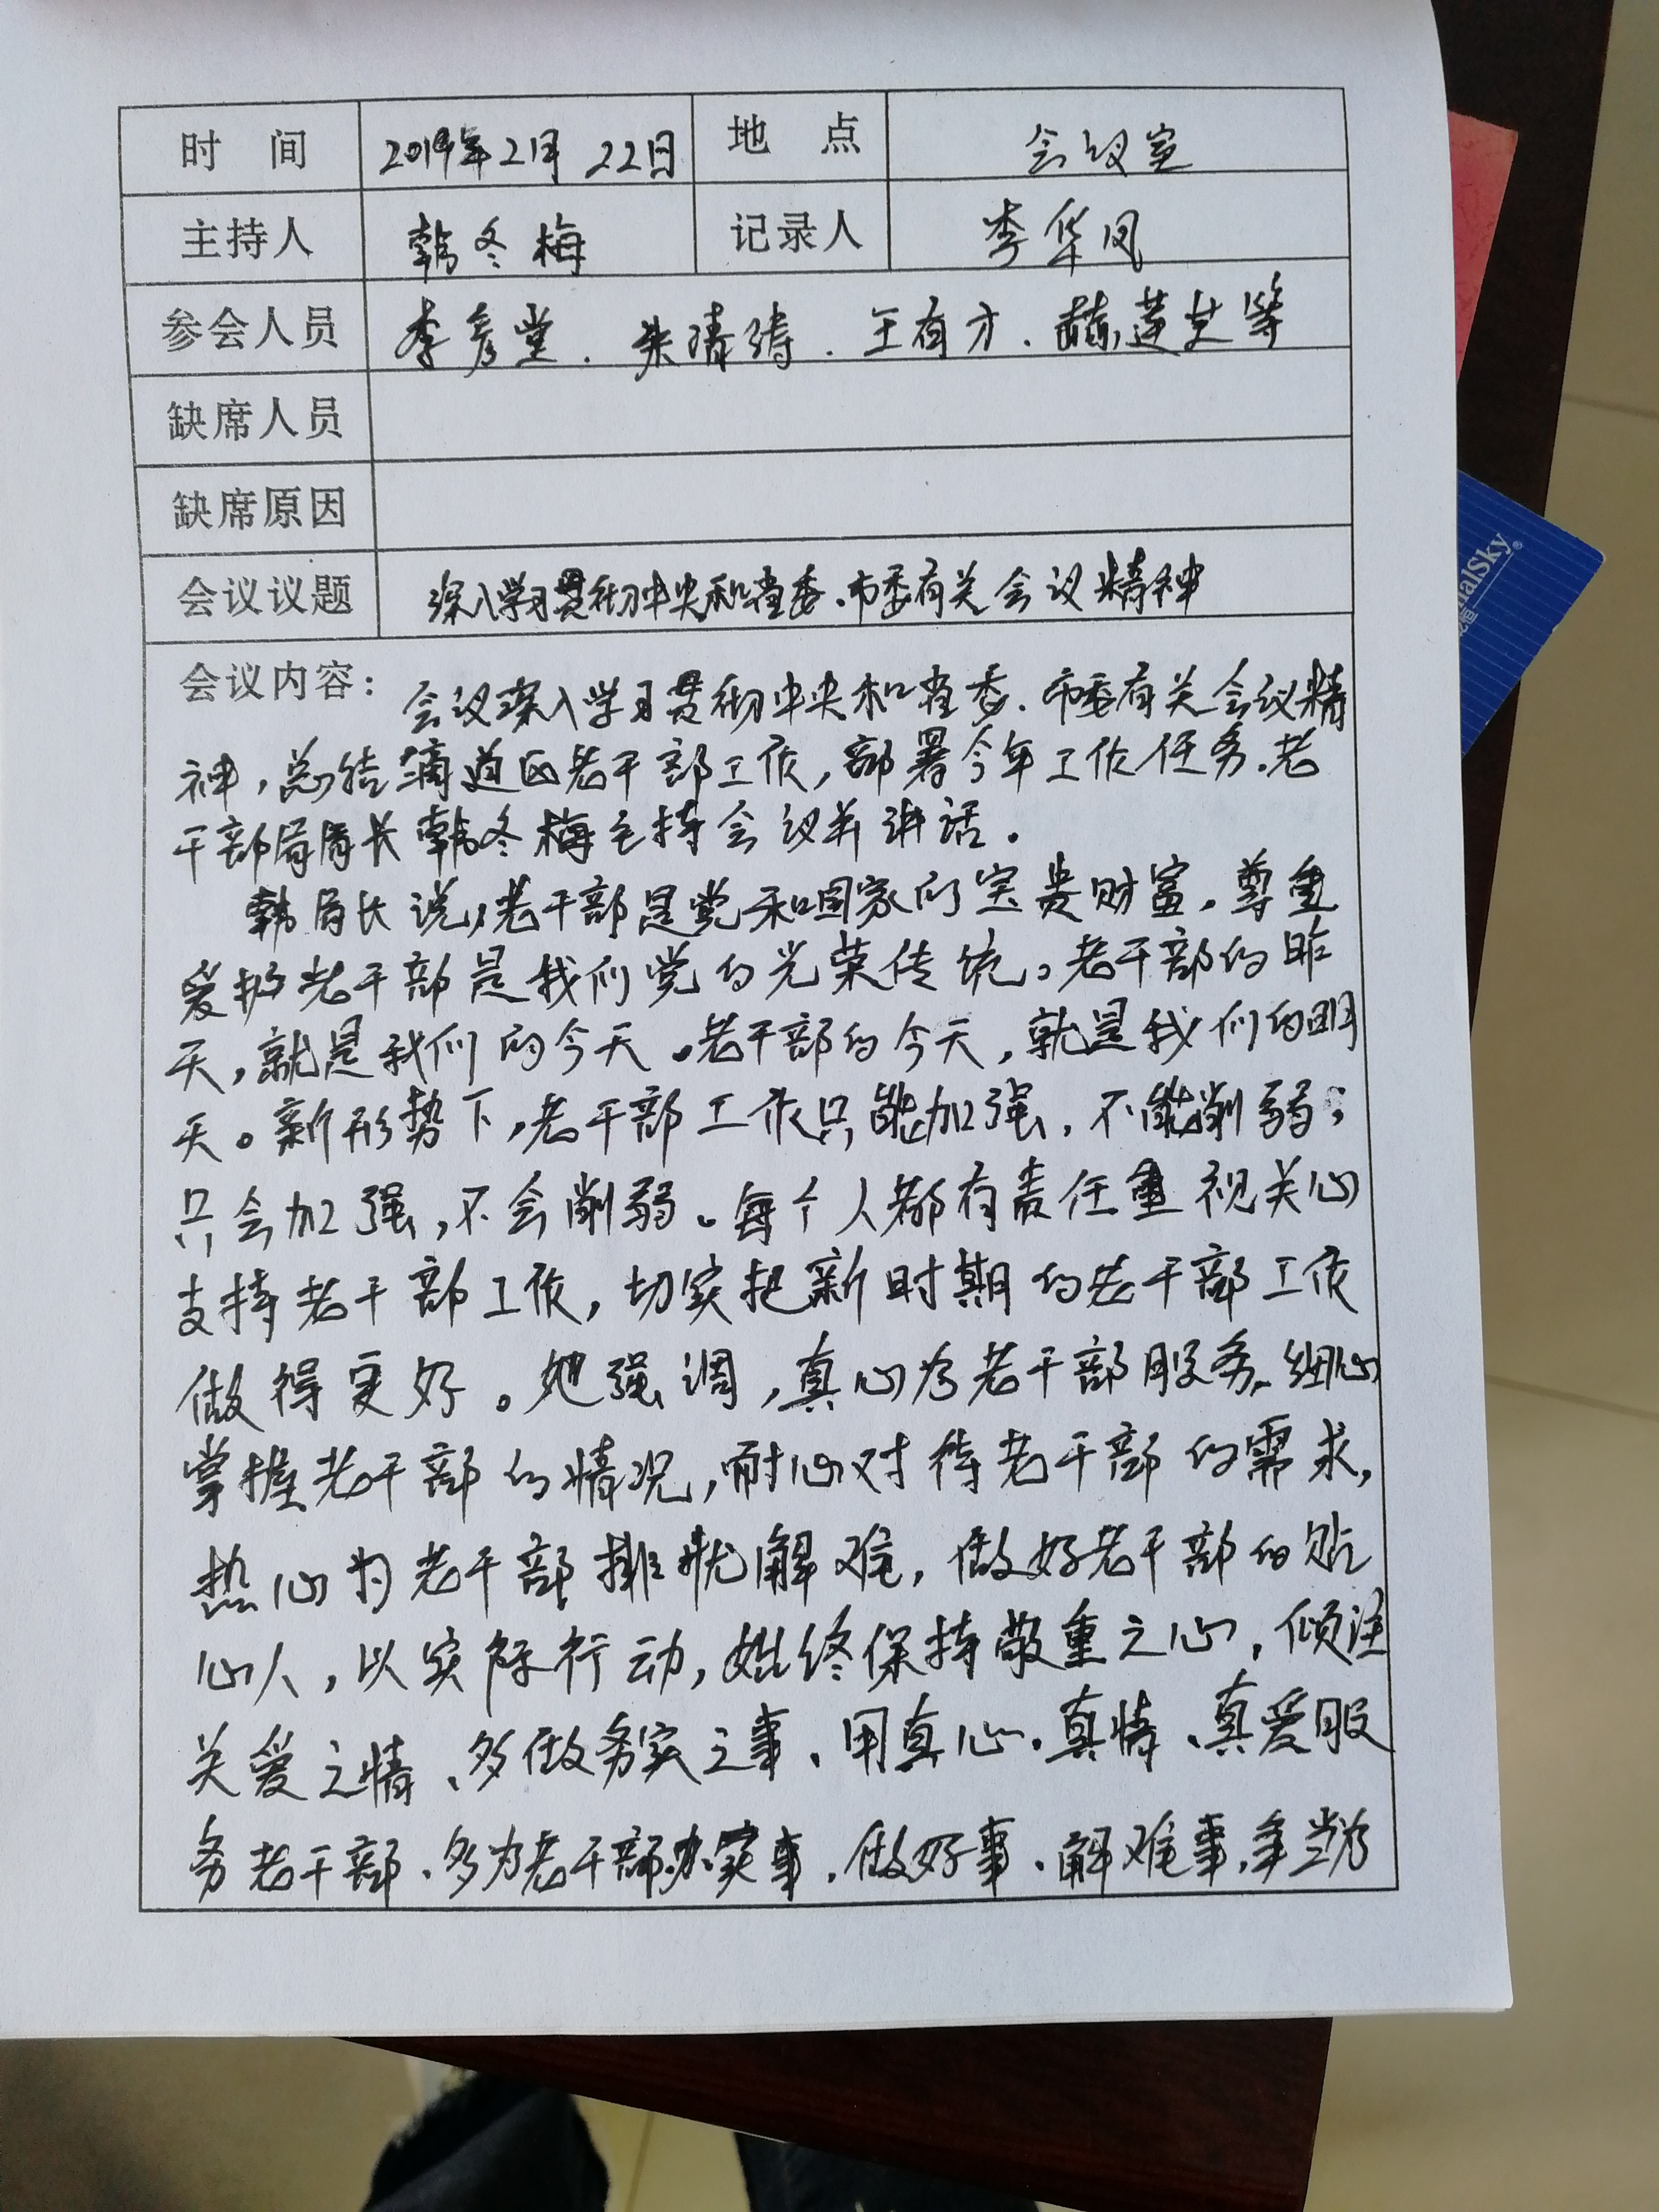 时 间 2019年2月22日 地 点 会议室
主持人 韩冬梅 记录人 李华凤
参会人员 李彦堂、朱清涛、王有才、赫莲芝等
缺席人员
缺席原因
会议议题 深入学习贯彻中央和省委、市委有关会议精神
会议内容：会议深入学习贯彻中央和省委、市委有关会议精
神，总结滴道区老干部工作，部署今年工作任务。老
干部局局长韩冬梅主持会议并讲话。
韩局长说，老干部是党和国家的宝贵财富，尊重
爱护老干部是我们党的光荣传统。老干部的昨
天，就是我们的今天。老干部的今天，就是我们的明
天。新形势下，老干部工作只能加强，不能削弱；
只会加强，不会削弱。每个人都有责任重视关心
支持老干部工作，切实把新时期的老干部工作
做得更好。她强调，真心为老干部服务、细心
掌握老干部的情况，耐心对待老干部的需求，
热心为老干部排忧解难，做好老干部的贴
心人，以实际行动，始终保持敬重之心，倾注
关爱之情、多做务实之事、用真心、真情、真爱服
务老干部、多为老干部办实事、做好事、解难事，争当为
alSky®